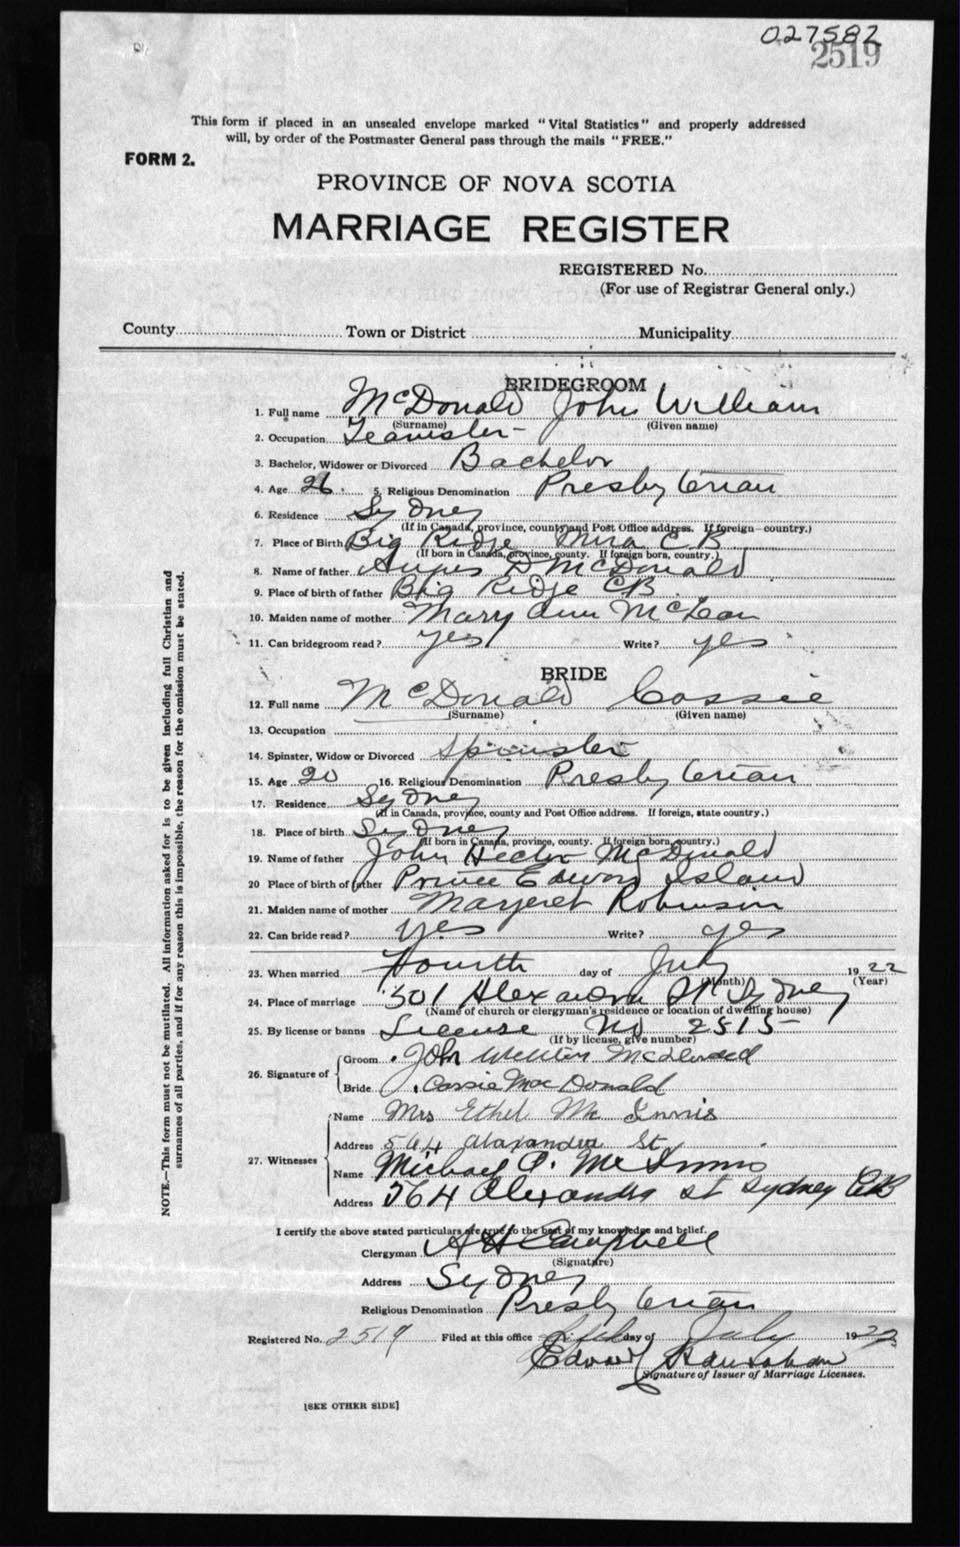 027582
2519
This form if placed in an unsealed envelope marked "Vital Statistics" and properly addressed
will, by order of the Postmaster General pass through the mails "FREE."
FORM 2.
PROVINCE OF NOVA SCOTIA
MARRIAGE REGISTER
REGISTERED No.
(For use of Registrar General only.)
County Town or District Municipality
BRIDEGROOM
1. Full name McDonald John William
(Surname) (Given name)
2. Occupation Teamster
3. Bachelor, Widower or Divorced Bachelor
4. Age 26. 5. Religious Denomination Presbyterian
6. Residence Sydney
(If in Canada, province, county and Post Office address. If foreign—country.)
7. Place of Birth Big Ridge Mira C B
(If born in Canada, province, county. If foreign born, country.)
8. Name of father Angus D McDonald
9. Place of birth of father Big Ridge CB
10. Maiden name of mother Mary Ann McLean
11. Can bridegroom read? yes Write? yes
BRIDE
12. Full name McDonald Cassie
(Surname) (Given name)
13. Occupation
14. Spinster, Widow or Divorced Spinster
15. Age 20 16. Religious Denomination Presbyterian
17. Residence Sydney
(If in Canada, province, county and Post Office address. If foreign, state country.)
18. Place of birth Sydney
(If born in Canada, province, county. If foreign born, country.)
19. Name of father John Hector McDonald
20 Place of birth of father Prince Edward Island
21. Maiden name of mother Margeret Robinson
22. Can bride read? yes Write? yes
23. When married Fourth day of July 1922
(Month) (Year)
24. Place of marriage 501 Alexandra St Sydney
(Name of church or clergyman's residence or location of dwelling house)
25. By license or banns License No 2515
(If by license, give number)
26. Signature of
Groom John William McDonald
Bride Cassie MacDonald
27. Witnesses
Name Mrs Ethel Mc Innis
Address 564 Alaxandra St.
Name Michael A. McInnis
Address 564 Alexandra st Sydney CB
I certify the above stated particulars are true to the best of my knowledge and belief.
Clergyman A H Campbell
(Signature)
Address Sydney
Religious Denomination Presbyterian
Registered No. 2519 Filed at this office day of July 1922
Edward
Signature of Issuer of Marriage Licenses.
[SEE OTHER SIDE]
NOTE.—This form must not be mutilated. All information asked for is to be given including full Christian and
surnames of all parties, and if for any reason this is impossible, the reason for the omission must be stated.